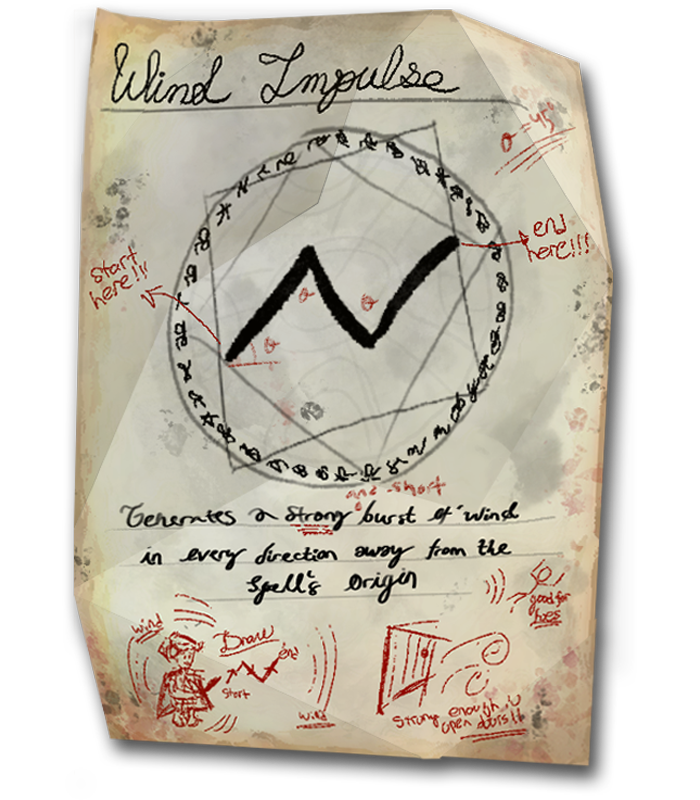 Wind Impulse
θ = 45°
end
here!!!
start
here!!!
θ
θ
θ
and short
Generates a strong burst of wind
in every direction away from the
spell's Origin
good for
foes
wind
Draw
end
start
wind
Strong enough to
open doors!!